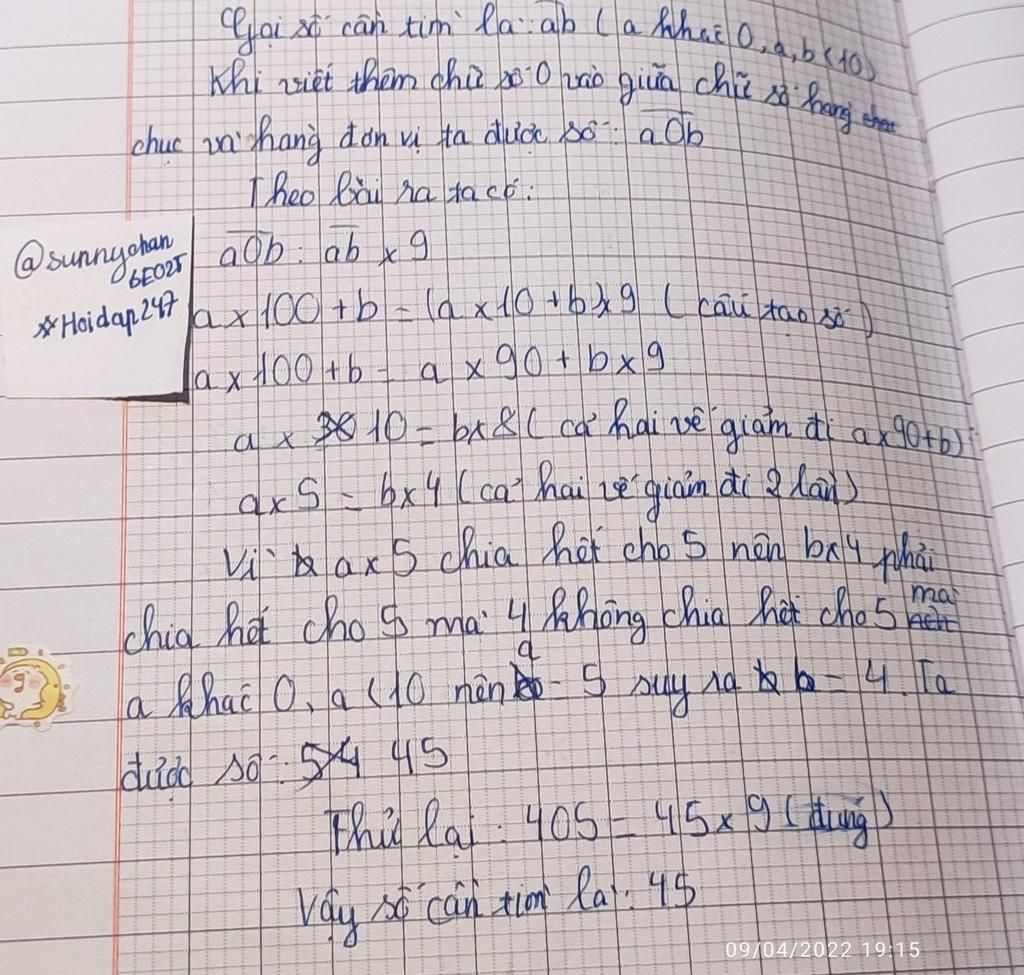 Gọi số cần tìm là: ab ( a khác 0, a, b < 10)
Khi viết thêm chữ số 0 vào giữa chữ số hàng
chục và hàng đơn vị ta được số: a0b
Theo bài ra ta có:
a0b = ab x 9
a x 100 + b = (a x 10 + b) x 9 ( cấu tạo số )
a x 100 + b = a x 90 + b x 9
a x 10 = b x 8 ( cả hai vế giảm đi a x 90 + b )
a x 5 = b x 4 ( cả hai vế giảm đi 2 lần )
Vì a x 5 chia hết cho 5 nên b x 4 phải
chia hết cho 5 mà 4 không chia hết cho 5 mà
a khác 0, a < 10 nên a = 5 suy ra b = 4. Ta
được số: 45
Thử lại: 405 = 45 x 9 ( đúng )
Vậy số cần tìm là: 45
@sunnychan
6E025
#Hoidap247
09/04/2022 19:15